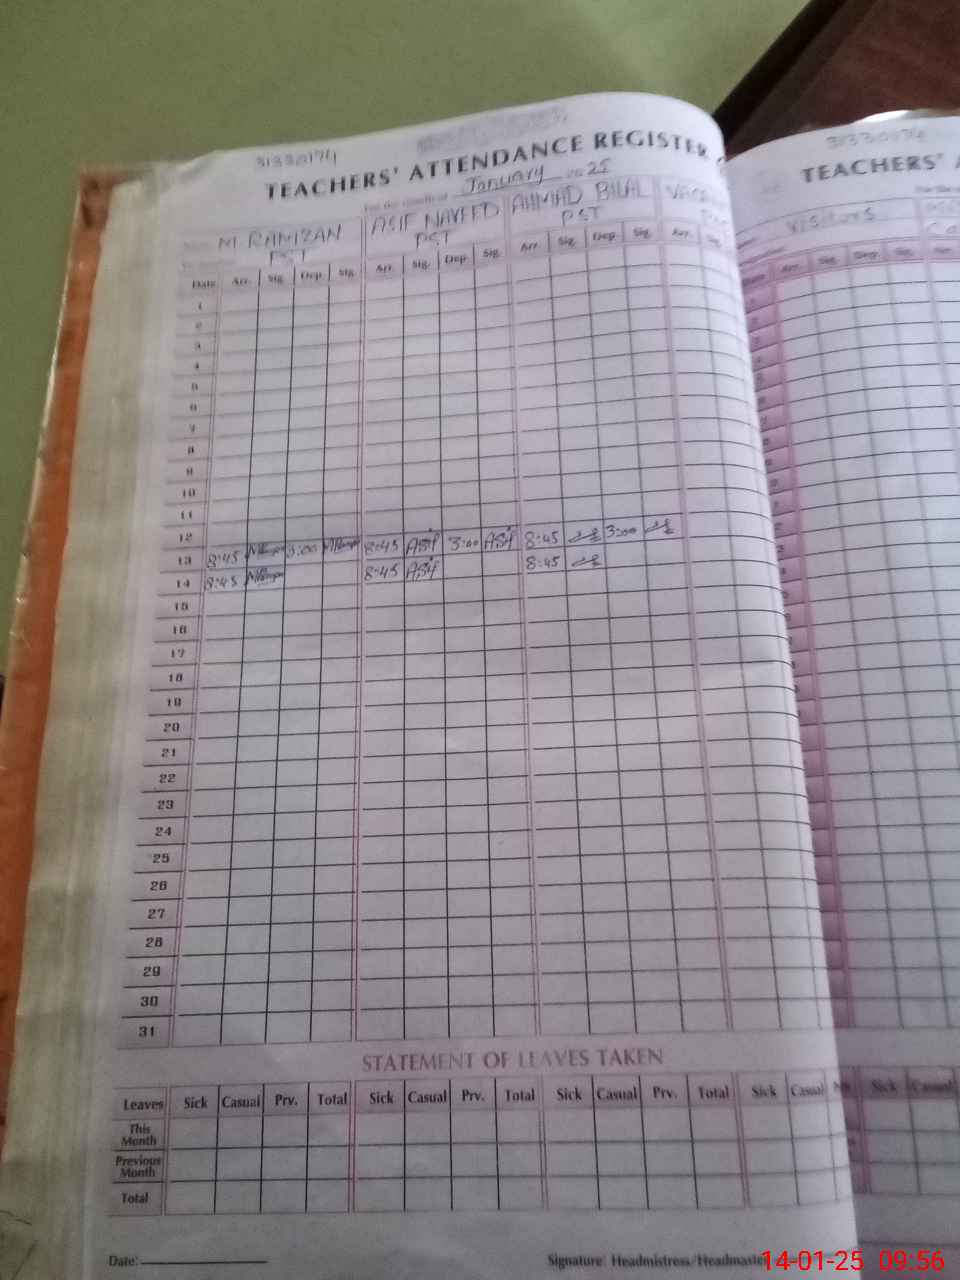 31330174
TEACHERS' ATTENDANCE REGISTER
For the month of January 2025
M RAMZAN ASIF NAVEED AHMAD BILAL
PST PST PST
Date Arr. Sig. Dep. Sig. Arr. Sig. Dep. Sig. Arr. Sig. Dep. Sig. Arr. Sig.
1
2
3
4
5
6
7
8
9
10
11
12
13 8:45 3:00 8:45 Asif 3:00 Asif 8:45 3:00
14 8:45 8:45 Asif 8:45
15
16
17
18
19
20
21
22
23
24
25
26
27
28
29
30
31
STATEMENT OF LEAVES TAKEN
Leaves Sick Casual Prv. Total Sick Casual Prv. Total Sick Casual Prv. Total Sick Casual
This Month
Previous Month
Total
Date:
Signature: Headmistress/Headmaster
31330174
TEACHERS'
VISITORS
Arr. Sig. Dep. Sig.
Sick Casual
14-01-25 09:56